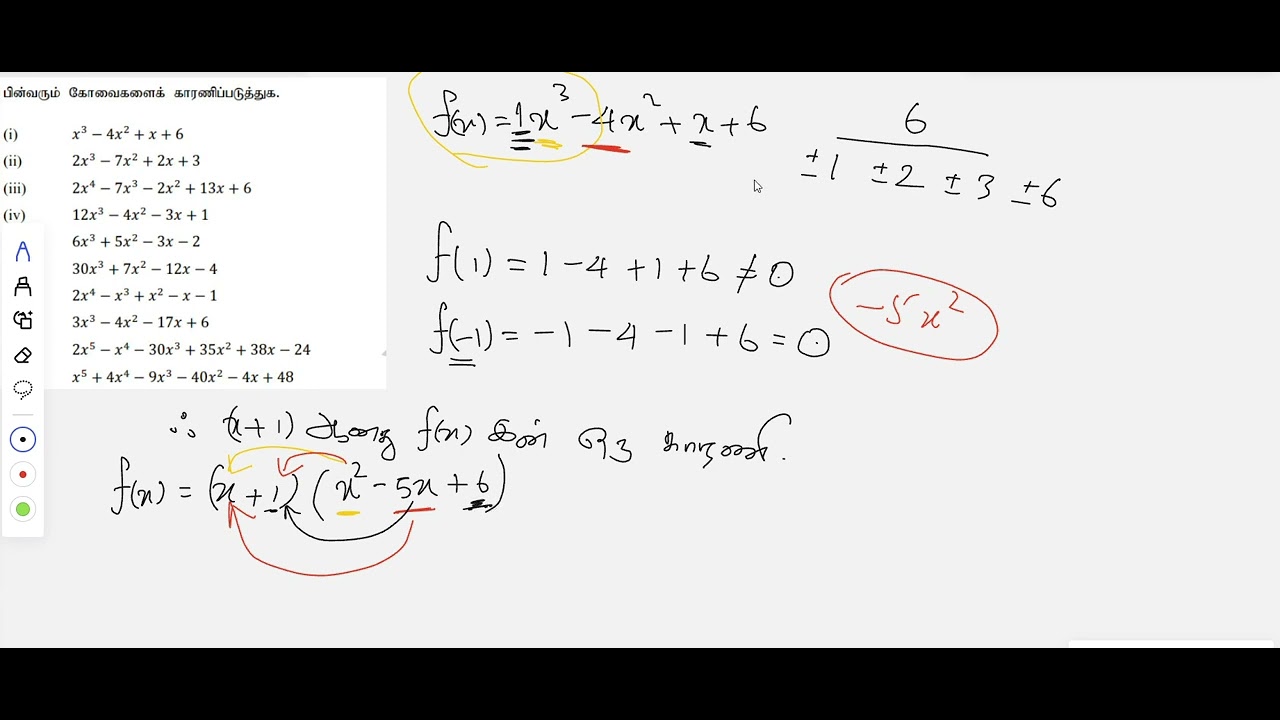 பின்வரும் கோவைகளைக் காரணிப்படுத்துக.
(i) x³ − 4x² + x + 6
(ii) 2x³ − 7x² + 2x + 3
(iii) 2x⁴ − 7x³ − 2x² + 13x + 6
(iv) 12x³ − 4x² − 3x + 1
6x³ + 5x² − 3x − 2
30x³ + 7x² − 12x − 4
2x⁴ − x³ + x² − x − 1
3x³ − 4x² − 17x + 6
2x⁵ − x⁴ − 30x³ + 35x² + 38x − 24
x⁵ + 4x⁴ − 9x³ − 40x² − 4x + 48
f(x) = 1x³ − 4x² + x + 6
6
±1 ±2 ±3 ±6
f(1) = 1 − 4 + 1 + 6 ≠ 0
f(-1) = −1 − 4 − 1 + 6 = 0
−5x²
∴ (x+1) ஆனது f(x) இன் ஒரு காரணி.
f(x) = (x + 1) (x² − 5x + 6)